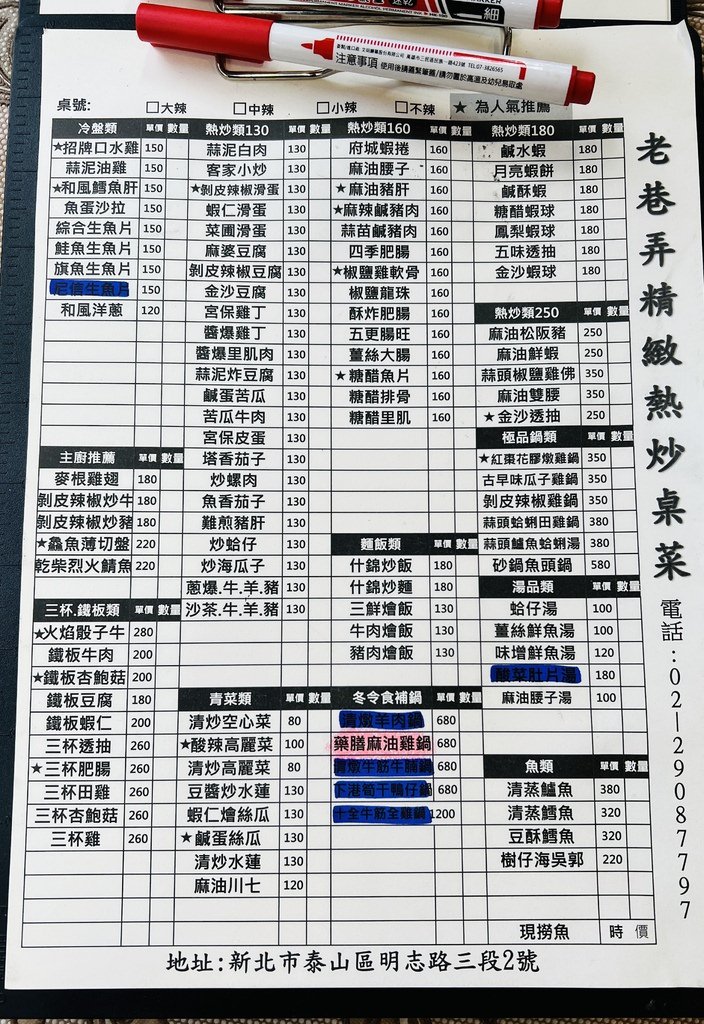 細
注意事項 使用後請蓋緊筆蓋/請勿置於高溫及幼兒易取處
桌號: □大辣 □中辣 □小辣 □不辣 ★ 為人氣推薦
冷盤類 單價 數量
★招牌口水雞 150
蒜泥油雞 150
★和風鱈魚肝 150
魚蛋沙拉 150
綜合生魚片 150
鮭魚生魚片 150
旗魚生魚片 150
生魚片 150
和風洋蔥 120
主廚推薦 單價 數量
麥根雞翅 180
剝皮辣椒炒牛 180
剝皮辣椒炒豬 180
★鱻魚薄切盤 220
乾柴烈火鯖魚 220
三杯.鐵板類 單價 數量
★火焰骰子牛 280
鐵板牛肉 200
★鐵板杏鮑菇 200
鐵板豆腐 180
鐵板蝦仁 200
三杯透抽 260
★三杯肥腸 260
三杯田雞 260
三杯杏鮑菇 260
三杯雞 260
熱炒類130 單價 數量
蒜泥白肉 130
客家小炒 130
★剝皮辣椒滑蛋 130
蝦仁滑蛋 130
菜圃滑蛋 130
麻婆豆腐 130
剝皮辣椒豆腐 130
金沙豆腐 130
宮保雞丁 130
醬爆雞丁 130
醬爆里肌肉 130
蒜泥炸豆腐 130
鹹蛋苦瓜 130
苦瓜牛肉 130
宮保皮蛋 130
塔香茄子 130
炒螺肉 130
魚香茄子 130
難煎豬肝 130
炒蛤仔 130
炒海瓜子 130
蔥爆.牛.羊.豬 130
沙茶.牛.羊.豬 130
青菜類 單價 數量
清炒空心菜 80
★酸辣高麗菜 100
清炒高麗菜 80
豆醬炒水蓮 130
蝦仁燴絲瓜 130
★鹹蛋絲瓜 130
清炒水蓮 130
麻油川七 120
熱炒類160 單價 數量
府城蝦捲 160
麻油腰子 160
★麻油豬肝 160
★麻辣鹹豬肉 160
蒜苗鹹豬肉 160
四季肥腸 160
★椒鹽雞軟骨 160
椒鹽龍珠 160
酥炸肥腸 160
五更腸旺 160
薑絲大腸 160
★糖醋魚片 160
糖醋排骨 160
糖醋里肌 160
麵飯類 單價 數量
什錦炒飯 180
什錦炒麵 180
三鮮燴飯 130
牛肉燴飯 130
豬肉燴飯 130
冬令食補鍋 單價 數量
清燉羊肉鍋 680
藥膳麻油雞鍋 680
清燉牛筋牛腩鍋 680
下港筍干鴨仔鍋 680
十全牛筋全雞鍋 1200
熱炒類180 單價 數量
鹹水蝦 180
月亮蝦餅 180
鹹酥蝦 180
糖醋蝦球 180
鳳梨蝦球 180
五味透抽 180
金沙蝦球 180
熱炒類250 單價 數量
麻油松阪豬 250
麻油鮮蝦 250
蒜頭椒鹽雞佛 350
麻油雙腰 350
★金沙透抽 250
極品鍋類 單價 數量
★紅棗花膠燉雞鍋 350
古早味瓜子雞鍋 350
剝皮辣椒雞鍋 350
蒜頭蛤蜊田雞鍋 380
蒜頭鱸魚蛤蜊湯 380
砂鍋魚頭鍋 580
湯品類 單價 數量
蛤仔湯 100
薑絲鮮魚湯 100
味增鮮魚湯 120
酸菜肚片湯 180
麻油腰子湯 100
魚類 單價 數量
清蒸鱸魚 380
清蒸鱈魚 320
豆酥鱈魚 320
樹仔海吳郭 220
現撈魚 時 價
老巷弄精緻熱炒桌菜
電話:02-29087797
地址:新北市泰山區明志路三段2號